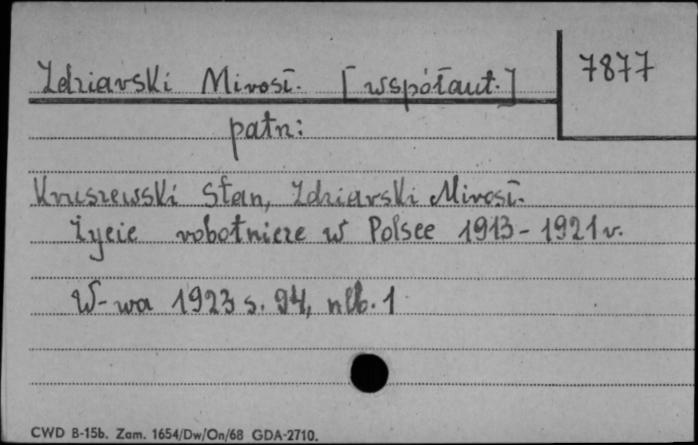 Zdziarski Mirosł. [współaut.]
7877
patrz:
Kruszewski Stan, Zdziarski Mirosł.
Życie robotnicze w Polsce 1913-1921 r.
W-wa 1923 s. 94, nlb. 1
CWD B-15b. Zam. 1654/Dw/On/68 GDA-2710.